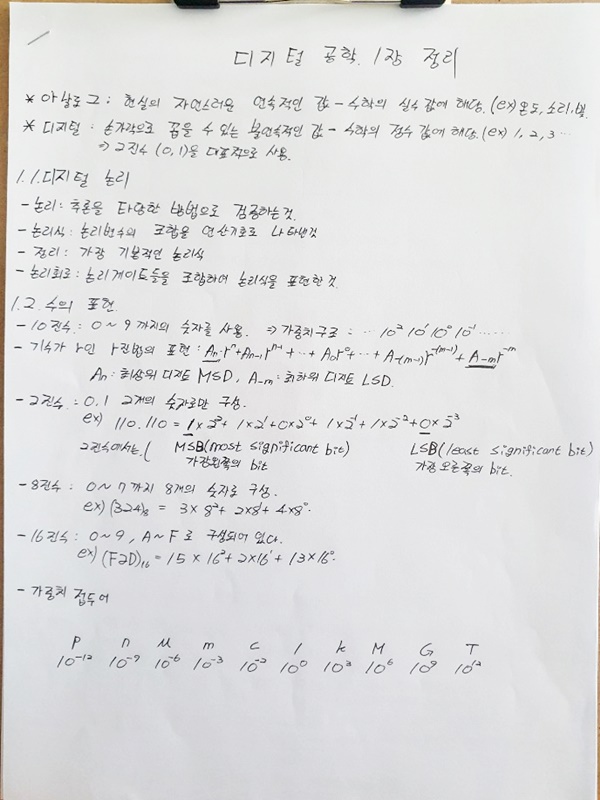 디지털 공학 1장 정리
* 아날로그 : 현실의 자연스러운 연속적인 값 - 수학의 실수값에 해당. (ex) 온도, 소리, 빛.
* 디지털 : 손가락으로 꼽을 수 있는 불연속적인 값 - 수학의 정수 값에 해당. (ex) 1, 2, 3 ...
⇒ 2진수 (0, 1)을 대표적으로 사용.
1.1. 디지털 논리
- 논리 : 추론을 타당한 방법으로 검증하는 것.
- 논리식 : 논리변수의 조합을 연산기호로 나타낸것
- 정리 : 가장 기본적인 논리식
- 논리회로 : 논리게이트들을 조합하여 논리식을 표현한 것.
1.2. 수의 표현
- 10진수 : 0 ~ 9 까지의 숫자를 사용. ⇒ 가중치구조 : ... 10² 10¹ 10⁰ 10⁻¹ ......
- 기수가 r인 r진법의 표현 : Aₙ·rⁿ+Aₙ₋₁rⁿ⁻¹ + ... + A₀r⁰ + ... + A₋₍ₘ₋₁₎r⁻⁽ᵐ⁻¹⁾ + A₋ₘr⁻ᵐ
Aₙ : 최상위 디지트 MSD, A₋ₘ : 최하위 디지트 LSD.
- 2진수 : 0.1 2개의 숫자로만 구성.
ex) 110.110 = 1×2² + 1×2¹ + 0×2⁰ + 1×2⁻¹ + 1×2⁻² + 0×2⁻³
2진수에서는. ( MSB(most significant bit) LSB(least significant bit)
가장왼쪽의 bit 가장 오른쪽의 bit.
- 8진수 : 0 ~ 7 까지 8개의 숫자로 구성.
ex) (324)₈ = 3×8² + 2×8¹ + 4×8⁰.
- 16진수 : 0 ~ 9, A ~ F 로 구성되어 있다.
ex) (F2D)₁₆ = 15 × 16² + 2×16¹ + 13×16⁰.
- 가중치 접두어
P n μ m c 1 k M G T
10⁻¹² 10⁻⁹ 10⁻⁶ 10⁻³ 10⁻² 10⁰ 10³ 10⁶ 10⁹ 10¹²